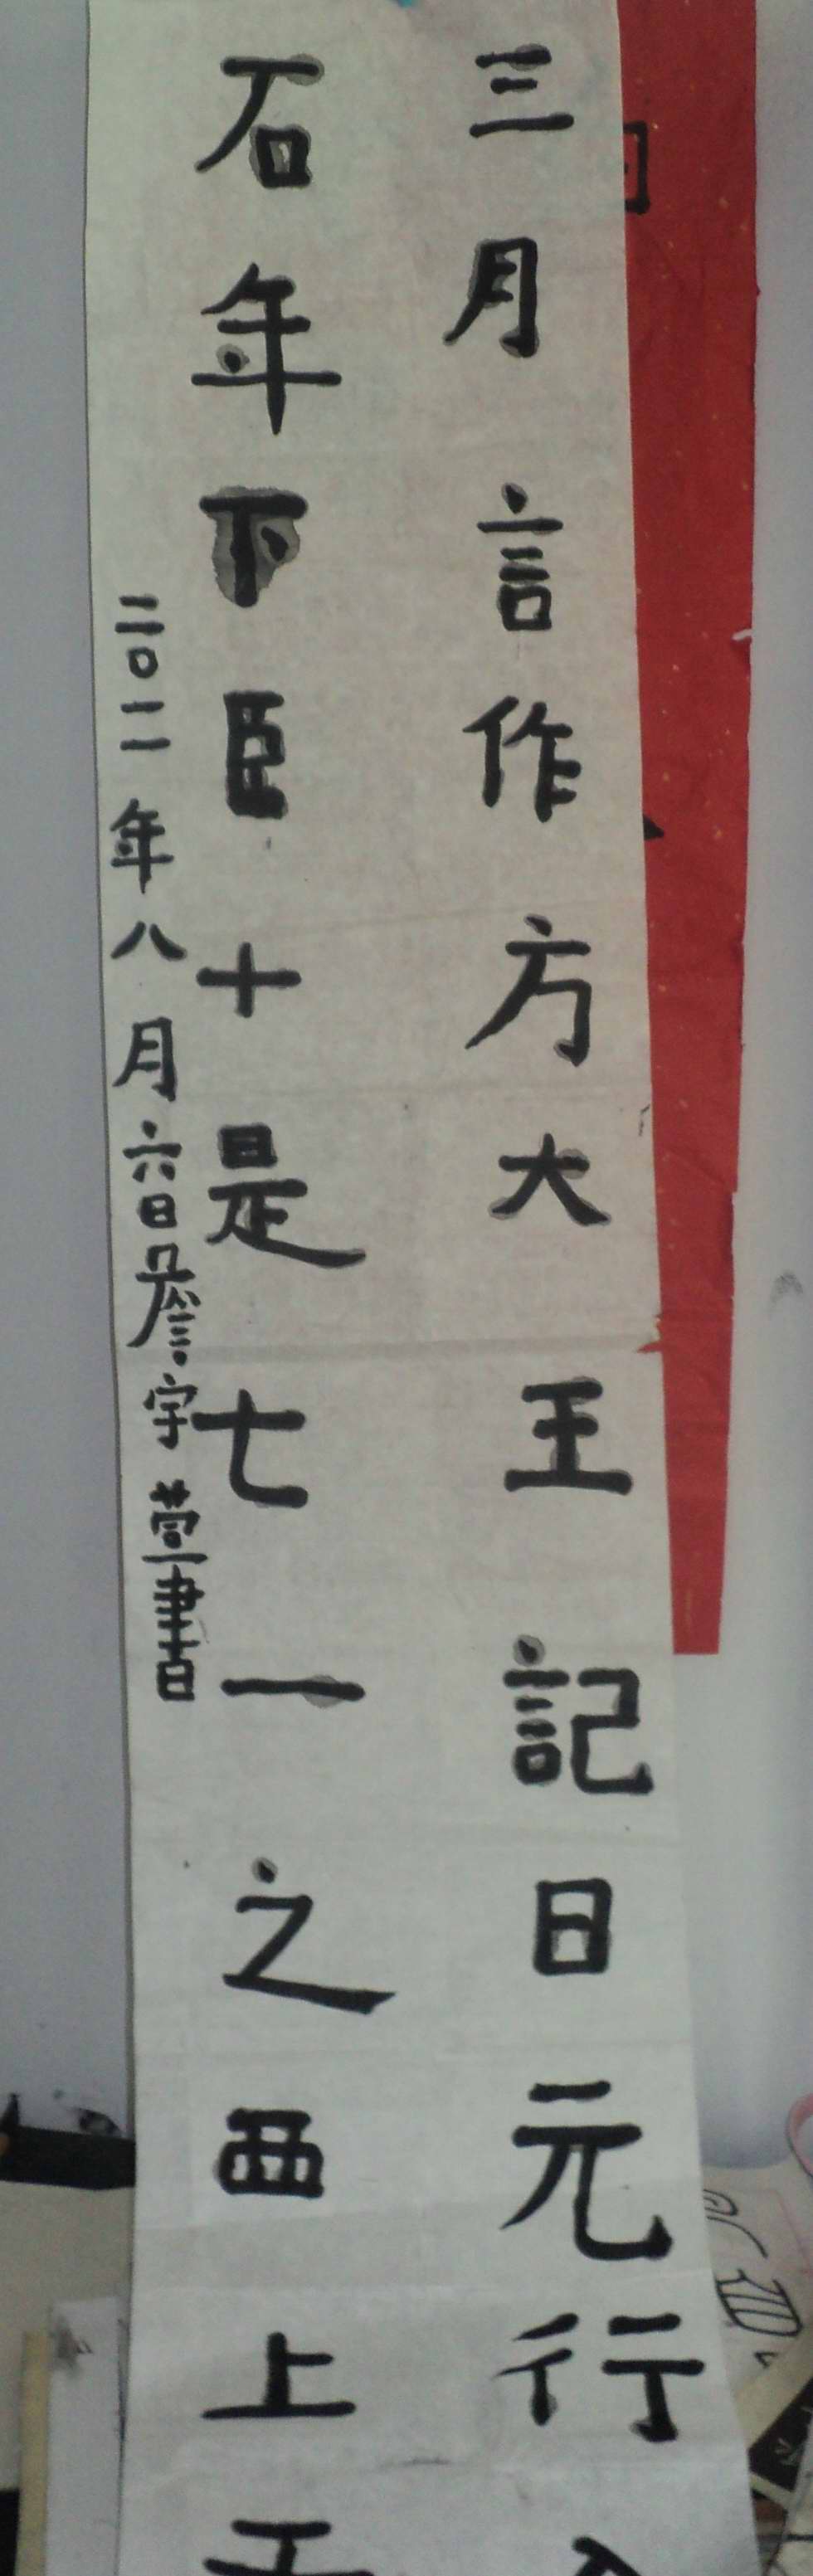 三月言作方大王記日元行
石年下臣十是七一之西上
二〇一一年八月六日詹宇萱書